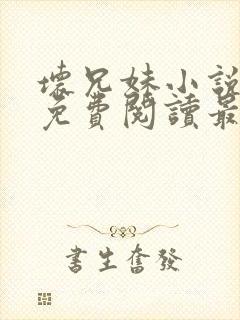 壞兄妹小說
免費閱讀最
書生奮發